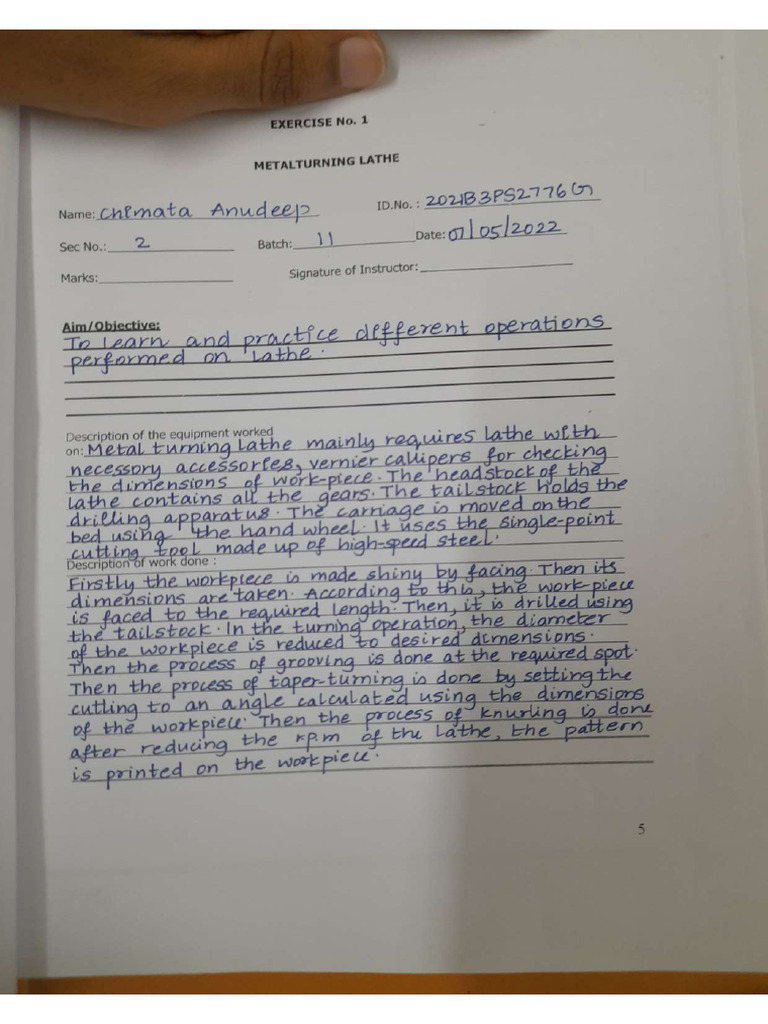 EXERCISE No. 1
METALTURNING LATHE
Name: Chemata Anudeep ID.No. : 2021B3PS2776G
Sec No.: 2 Batch: 11 Date: 07/05/2022
Marks: Signature of Instructor:
Aim/Objective:
To learn and practice different operations
performed on lathe.
Description of the equipment worked
on: Metal turning lathe mainly requires lathe with
necessory accessories, vernier callipers for checking
the dimensions of work-piece. The headstock of the
lathe contains all the gears. The tailstock holds the
drilling apparatus. The carriage is moved on the
bed using the hand wheel. It uses the single-point
cutting tool made up of high-speed steel.
Description of work done :
Firstly the workpiece is made shiny by facing. Then its
dimensions are taken. According to this, the work-piece
is faced to the required length. Then, it is drilled using
the tailstock. In the turning operation, the diameter
of the workpiece is reduced to desired dimensions.
Then the process of grooving is done at the required spot.
Then the process of taper-turning is done by setting the
cutling to an angle calculated using the dimensions
of the workpiece. Then the process of knurling is done
after reducing the r.p.m of the lathe, the pattern
is printed on the workpiece.
5